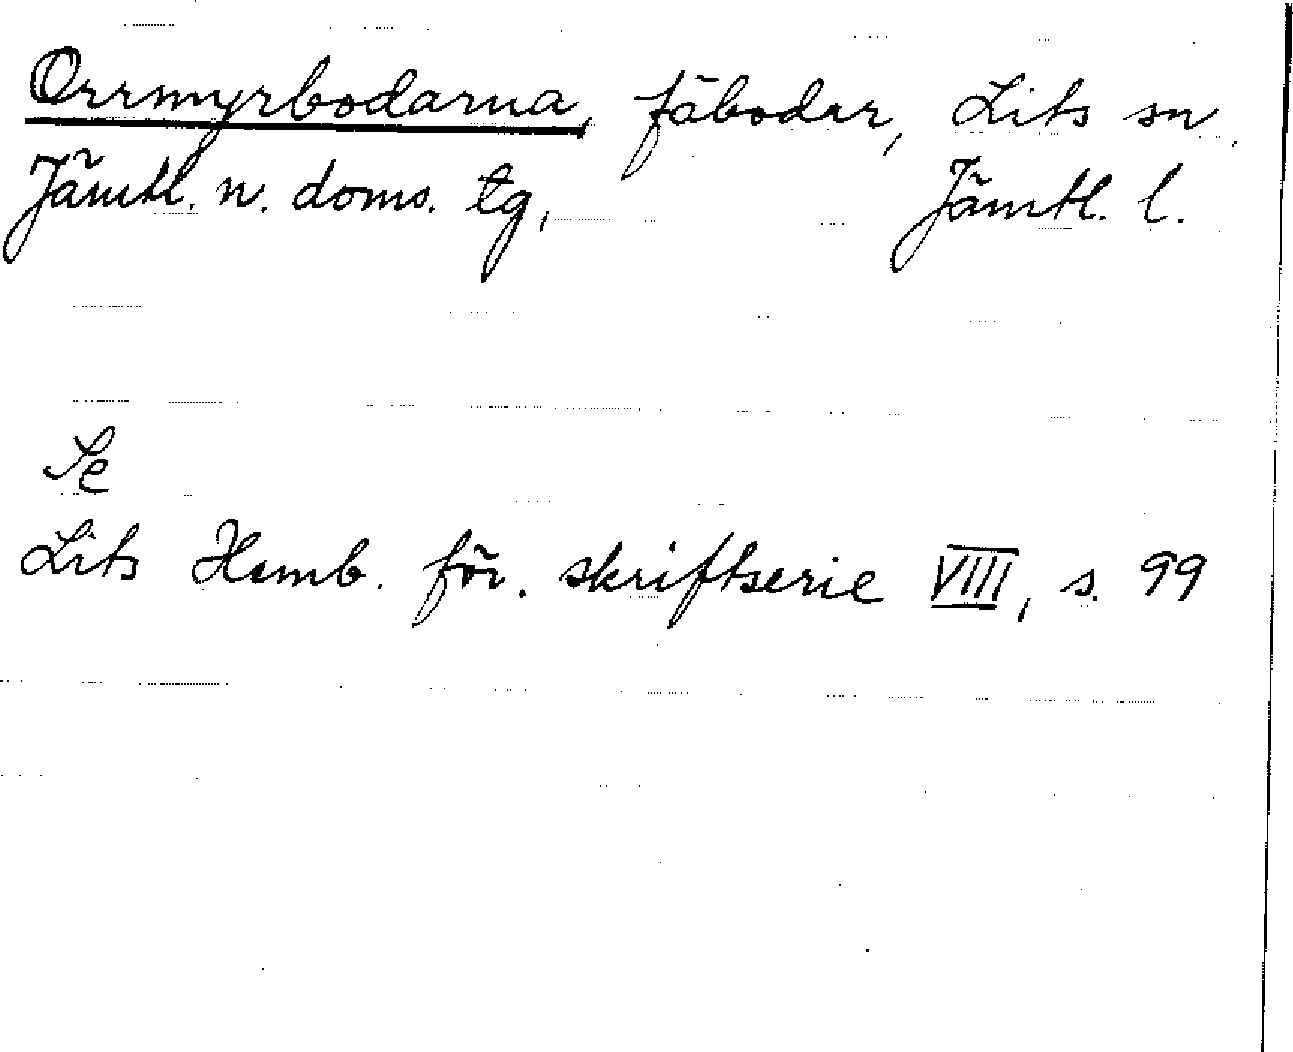 Orrmyrbodarna, fäbodar, Lits sn,
Jämtl. n. doms. tg, Jämtl. l.
Se
Lits Hemb. för. skriftserie VIII, s. 99